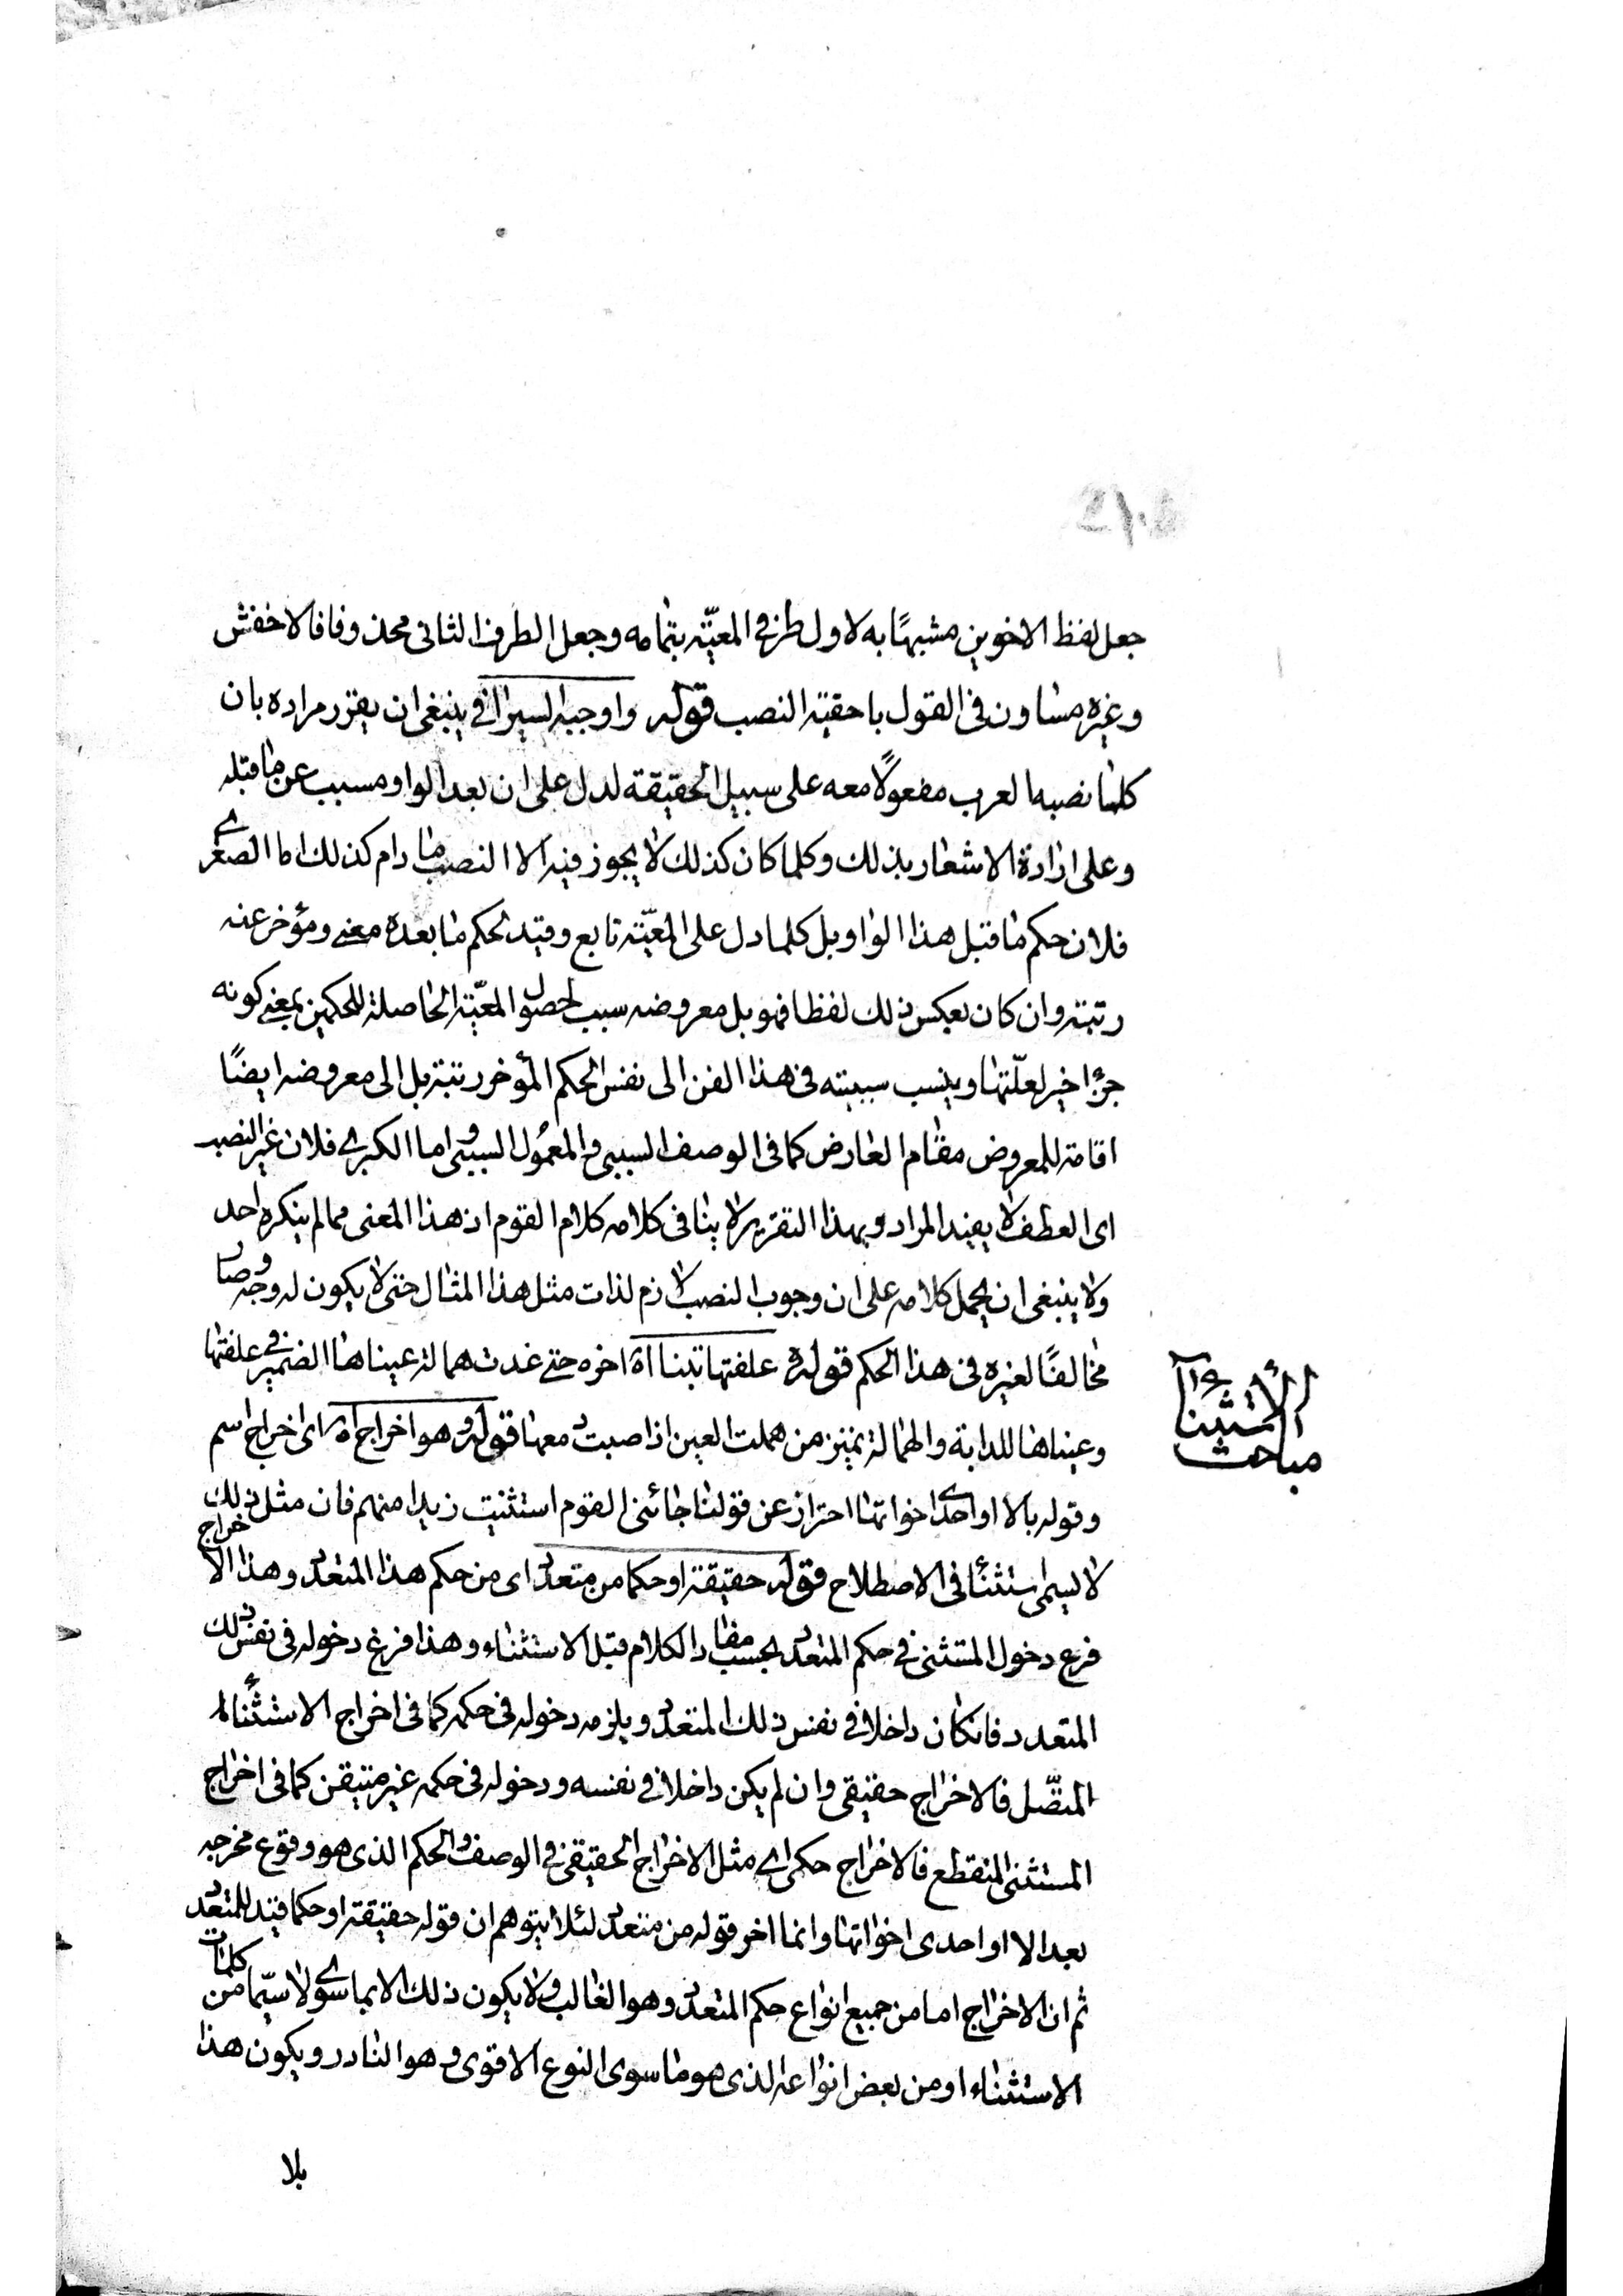 جعل لفظ الاخوين مشبهًا به لاول طرفي المعيّة بتمامه وجعل الطرف الثانى محذوفا فالاخفش
وغيره متساون فى القول باحقية النصب قوله واوجبه السيرافي ينبغى ان يقرر مراده بان
كلما نصبه العرب مفعولًا معه على سبيل الحقيقة لدل على ان بعد الواو مسبب عن ما قبله
وعلى ارادة الاشعار بذلك وكلما كان كذلك لا يجوز فيه الا النصب ما دام كذلك اما الصغرى
فلان حكم ما قبل هذا الواو بل كلما دل على المعيّة تابع وقيد لحكم ما بعده معنى ومؤخر عنه
رتبة وان كان بعكس ذلك لفظا فهو بل معروضه سبب لحصول المعيّة الحاصلة للحكمين بمعنى كونه
جزءا اخير لعلّتها وينسب سببيته فى هذا الفن الى نفس الحكم المؤخر رتبة بل الى معروضه ايضًا
اقامة للمعروض مقام العارض كما فى الوصف السببى والمعمول السببى واما الكبرى فلان غير النصب
اى العطف لا يفيد المراد وبهذا التقرير لا ينافى كلامه كلام القوم اذ هذا المعنى مما لم ينكره احد
ولا ينبغى ان يحمل كلامه على ان وجوب النصب لازم لذات مثل هذا المثال حتى لا يكون له وجه وصار
مخالفًا لغيره فى هذا الحكم قوله علفتها تبنا اه اخره حتى غدت همالة عيناها الضمير فى علفتها
وعيناها للدابة والهمالة تمييز من هملت العين اذا صبت دمعها قوله وهو اخراج اه اى اخراج اسم
وقوله بالا او احدى اخواتها احتراز عن قولنا جائنى القوم استثنيت زيدا منهم فان مثل ذلك
لا يسمى استثناءً فى الاصطلاح قوله حقيقة او حكما من متعدد اى من حكم هذا المتعدد وهذا الاخراج
فرع دخول المستثنى فى حكم المتعدد بحسب مفاد الكلام قبل الاستثناء وهذا فرع دخوله فى نفس ذلك
المتعدد فان كان داخلا فى نفس ذلك المتعدد ويلزمه دخوله فى حكمه كما فى اخراج الاستثناء
المتّصل فالاخراج حقيقى وان لم يكن داخلا فى نفسه ودخوله فى حكمه غير متيقن كما فى اخراج
المستثنى المنقطع فالاخراج حكمى اى مثل الاخراج الحقيقى فى الوصف والحكم الذى هو وقوع مخرجه
بعد الا او احدى اخواتها وانما اخر قوله من متعدد لئلا يتوهم ان قوله حقيقة او حكما قيد للمتعدد
ثم ان الاخراج اما من جميع انواع حكم المتعدد وهو الغالب ولا يكون ذلك الا بما سوى لا سيّما من كلمات
الاستثناء او من بعض انواعه الذى هو ما سوى النوع الاقوى وهو النادر ويكون هذا
بلا
مباحث
الاستثناء